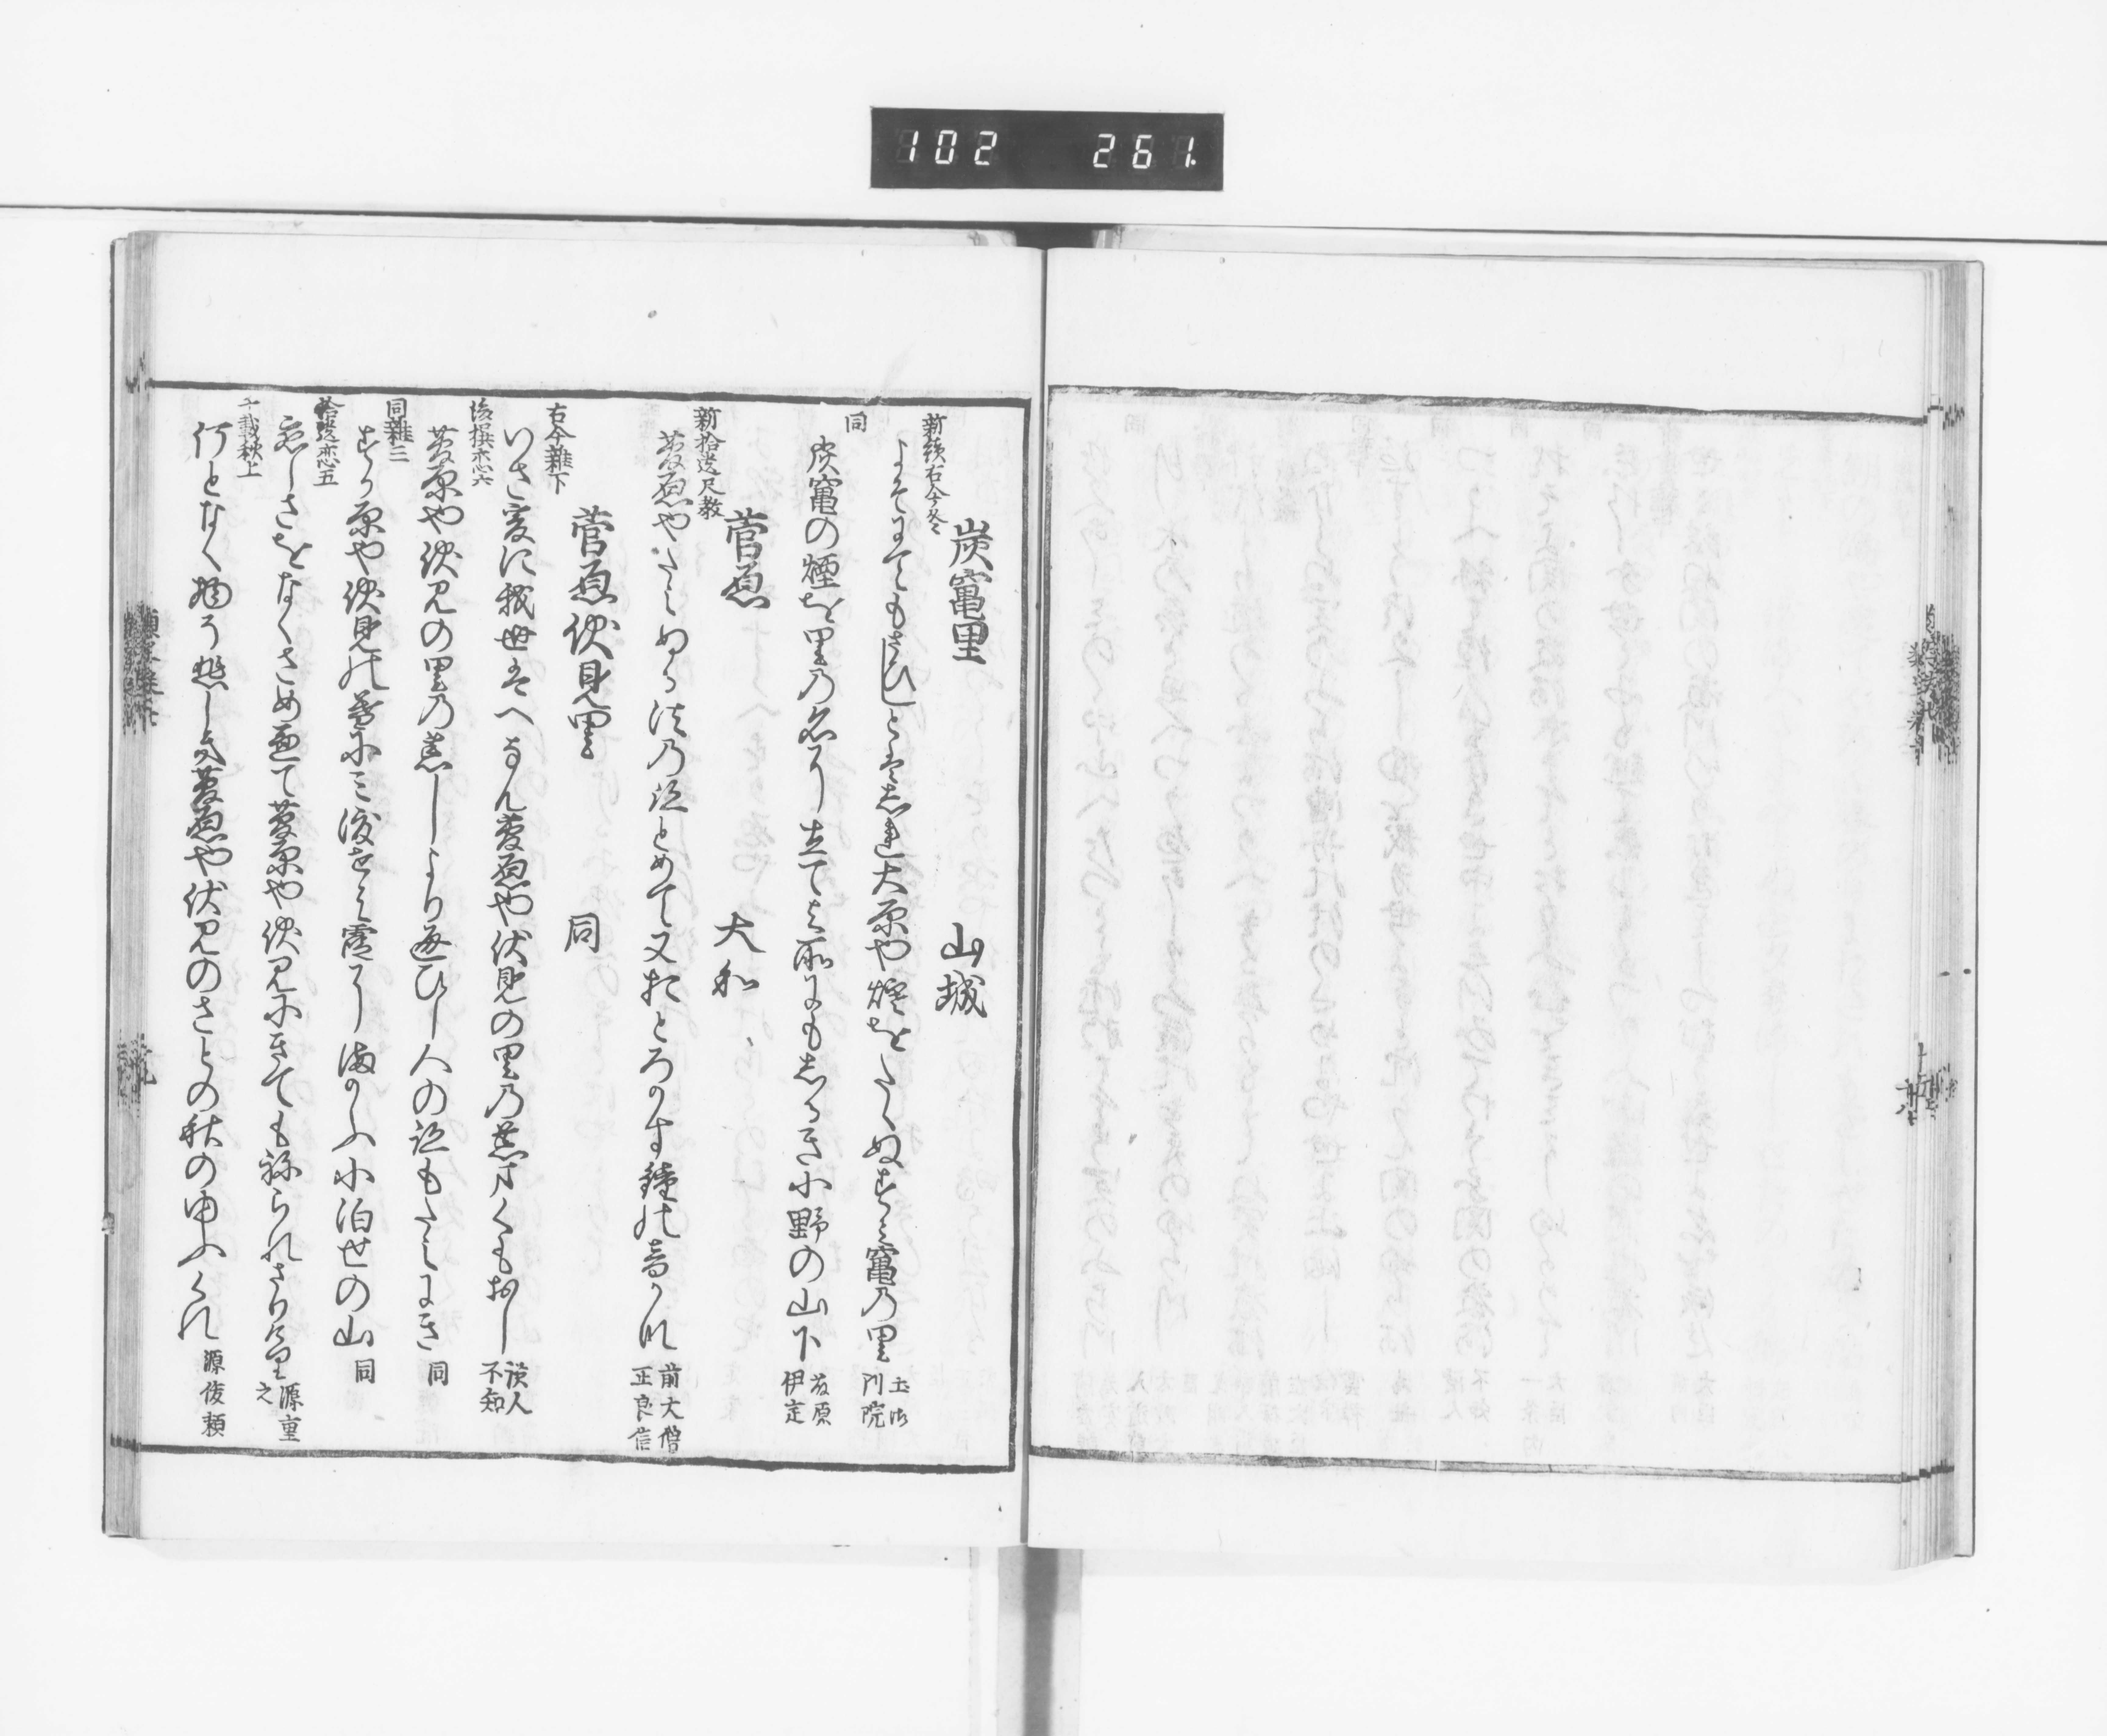 102 261
炭竃里 山城
新続古今冬
よそにてもさひしとそしれ大原や煙をたゝぬすミ竃乃里 土御門院
同
炭竃の煙を里乃名に立てよ所にもしるき小野の山下 藤原伊定
菅原 大和
新拾遺尺教
菅原やたえぬる法乃跡とめて又おとろかす鐘の音かな 前大僧正良信
菅原伏見里 同
古今雑下
いさ爰に我世はへなん菅原や伏見の里乃荒まくもおし 読人不知
後撰恋六
菅原や伏見の里乃荒しより通ひし人の跡もたえにき 同
同雑三
すか原や伏見の暮に三渡せは霞にまかふ小泊世の山 同
拾遺恋五
恋しさをなくさめ兼て菅原や伏見にきても祢られさりけり 源重之
千載秋上
何となく物そ悲しき菅原や伏見のさとの秋の申ふくれ 源俊頼